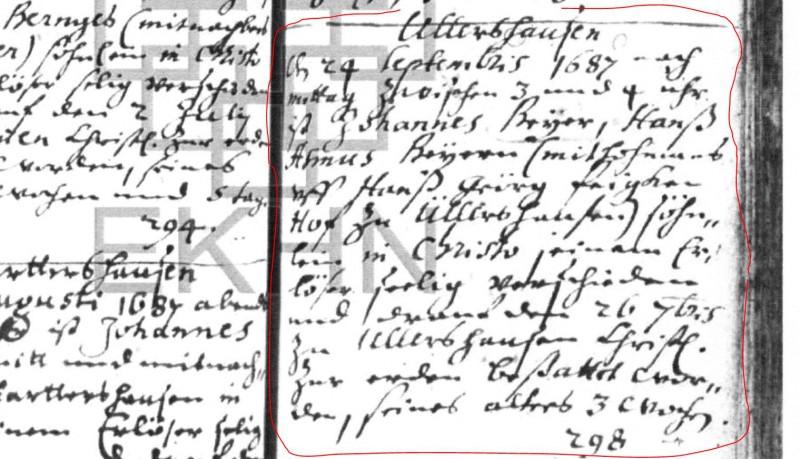 Bernges (mitnachbars
söhnlein in Christo
löser selig verschieden
auf den 2 July
Christl. zur erde
worden, seines
wochen und 5 tag.
294.
artershausen
Augusti 1687 abends
ist Johannes
und mitnach„
hartershausen in
inem Erlöser selig
Ullershausen
den 24 Septembris 1687 nach
mittag zwischen 3 und 4 uhr
ist Johannes Beyer, Hanß
Asmus Beyern (mitshofmans
uff Hanß Georg
Hof zu Ullershausen) söhn„
lein in Christo seinem Er„
löser seelig verschieden
und drauf den 26 7bris
zu Ullershausen Christl.
zur erden bestattet wor„
den, seines alters 3 wochen.
298
EKHN